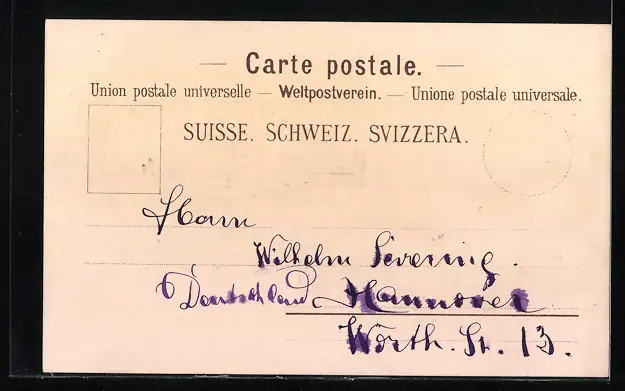 — Carte postale. —
Union postale universelle — Weltpostverein. — Unione postale universale.
SUISSE. SCHWEIZ. SVIZZERA.
Herrn
Wilhelm Severing.
Deutschland Hannover
Wörth. St. 13.